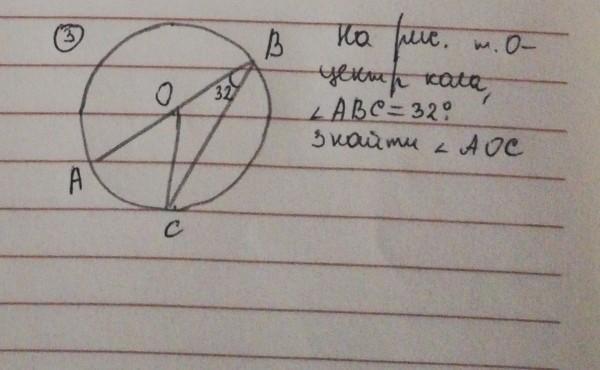 3
B
O
32
A
C
На рис. т. О-
центр кола,
∠ABC = 32°
Знайти ∠AOC